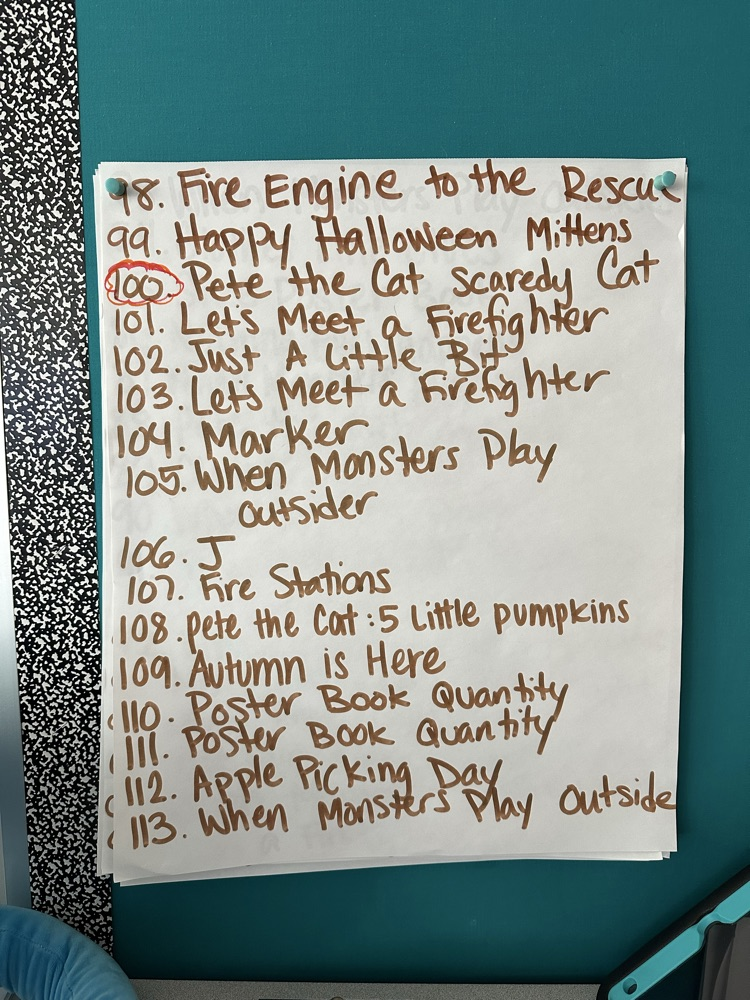 98. Fire Engine to the Rescue
99. Happy Halloween Mittens
100. Pete the Cat Scaredy Cat
101. Lets Meet a Firefighter
102. Just A Little Bit
103. Let's Meet a Firefighter
104. Marker
105. When Monsters Play
Outsider
106. J
107. Fire Stations
108. pete the Cat : 5 Little pumpkins
109. Autumn is Here
110. Poster Book Quantity
111. Poster Book Quantity
112. Apple Picking Day
113. When Monsters Play Outside